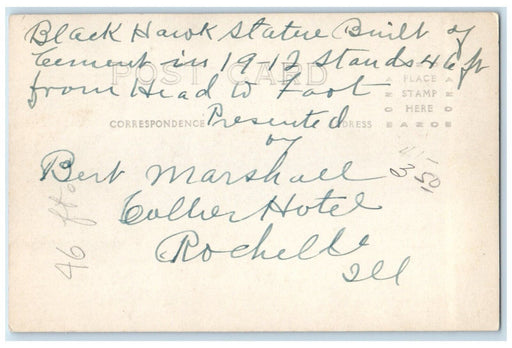 Black Hawk Statue Built of
Cement in 19-12 Stands 46 ft
POST CARD
from Head to Foot
PLACE
STAMP
HERE
CORRESPONDENCE
Presented
ADDRESS
by
Bert Marshall
Collier Hotel
Rochelle
Ill
46 ft